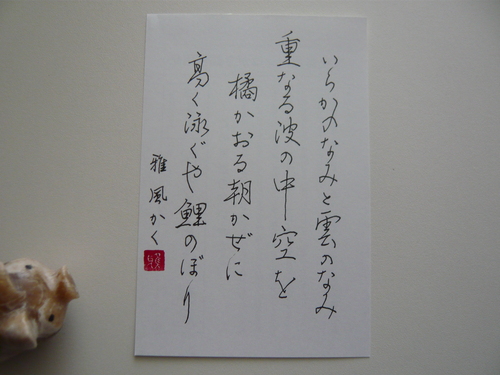 いらかのなみと雲のなみ
重なる波の中空を
橘かおる朝かぜに
高く泳ぐや鯉のぼり
雅風かく